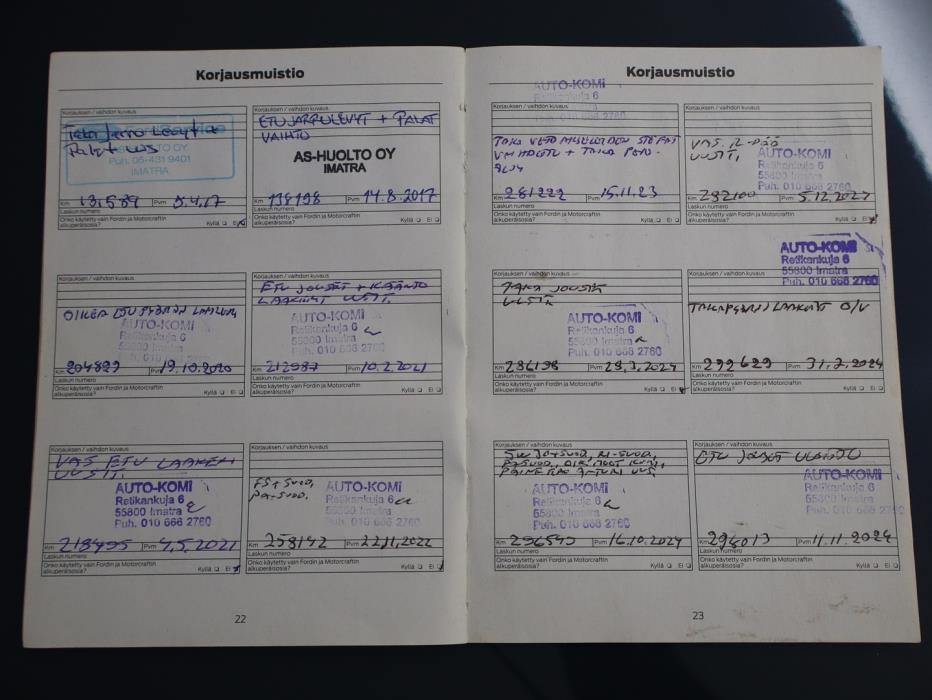 Korjausmuistio
Korjauksen / vaihdon kuvaus
Palat uus
AS-HUOLTO OY
Puh. 05-431 9401
IMATRA
Km 131589 Pvm 5.4.17
Laskun numero
Onko käytetty vain Fordin ja Motorcraftin
alkuperäisosia? Kyllä Ei
Korjauksen / vaihdon kuvaus
ETUJARRULEVYT + PALAT
VAIHTO
AS-HUOLTO OY
IMATRA
Km 138198 Pvm 14.8.2017
Laskun numero
Onko käytetty vain Fordin ja Motorcraftin
alkuperäisosia? Kyllä Ei
Korjauksen / vaihdon kuvaus
OIKEA ETU PYÖRÄN
AUTO-KOMI
Retikankuja 6
55800 Imatra
Puh. 010 666 2760
Km 204823 Pvm 19.10.2020
Laskun numero
Onko käytetty vain Fordin ja Motorcraftin
alkuperäisosia? Kyllä Ei
Korjauksen / vaihdon kuvaus
ETU JOUSET + KÄÄNTO
LAAKERIT UUSIT.
AUTO-KOMI
Retikankuja 6
55800 Imatra
Puh. 010 666 2760
Km 212987 Pvm 10.2.2021
Laskun numero
Onko käytetty vain Fordin ja Motorcraftin
alkuperäisosia? Kyllä Ei
Korjauksen / vaihdon kuvaus
VAS ETU LAAKERI
UUSIT.
AUTO-KOMI
Retikankuja 6
55800 Imatra
Puh. 010 666 2760
Km 218495 Pvm 4.5.2021
Laskun numero
Onko käytetty vain Fordin ja Motorcraftin
alkuperäisosia? Kyllä Ei
Korjauksen / vaihdon kuvaus
AUTO-KOMI
Retikankuja 6
55800 Imatra
Puh. 010 666 2760
Km 258142 Pvm 22.11.2022
Laskun numero
Onko käytetty vain Fordin ja Motorcraftin
alkuperäisosia? Kyllä Ei
22
Korjausmuistio
AUTO-KOMI
Retikankuja 6
55800 Imatra
Puh. 010 666 2760
Korjauksen / vaihdon kuvaus
TAKA
+ TAKA
Km 281222 Pvm 15.11.23
Laskun numero
Onko käytetty vain Fordin ja Motorcraftin
alkuperäisosia? Kyllä Ei
Korjauksen / vaihdon kuvaus
VAS. R-PÄÄ
UUSIT.
AUTO-KOMI
Retikankuja 6
55800 Imatra
Puh. 010 666 2760
Km 282100 Pvm 5.12.2023
Laskun numero
Onko käytetty vain Fordin ja Motorcraftin
alkuperäisosia? Kyllä Ei
Korjauksen / vaihdon kuvaus
TAKA JOUSET
AUTO-KOMI
Retikankuja 6
55800 Imatra
Puh. 010 666 2760
Km 286198 Pvm 28.3.2024
Laskun numero
Onko käytetty vain Fordin ja Motorcraftin
alkuperäisosia? Kyllä Ei
AUTO-KOMI
Retikankuja 6
55800 Imatra
Puh. 010 666 2760
Korjauksen / vaihdon kuvaus
LAAKERIT O/V
Km 292629 Pvm 31.7.2024
Laskun numero
Onko käytetty vain Fordin ja Motorcraftin
alkuperäisosia? Kyllä Ei
Korjauksen / vaihdon kuvaus
AUTO-KOMI
Retikankuja 6
55800 Imatra
Puh. 010 666 2760
Km 296543 Pvm 16.10.2024
Laskun numero
Onko käytetty vain Fordin ja Motorcraftin
alkuperäisosia? Kyllä Ei
Korjauksen / vaihdon kuvaus
ETU JOUSET
AUTO-KOMI
Retikankuja 6
55800 Imatra
Puh. 010 666 2760
Km 294013 Pvm 11.11.2024
Laskun numero
Onko käytetty vain Fordin ja Motorcraftin
alkuperäisosia? Kyllä Ei
23